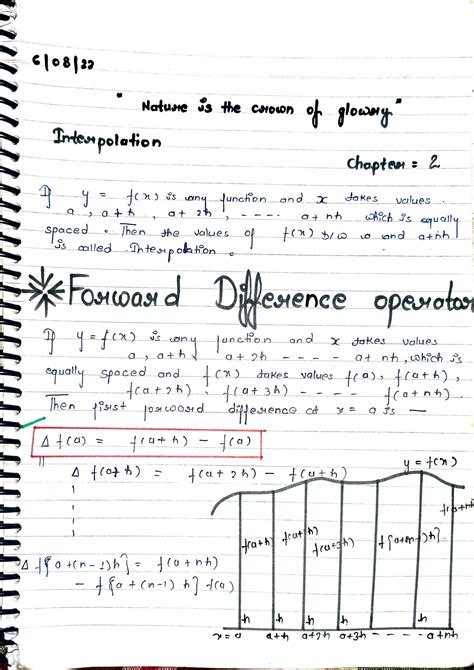 6/08/22
" Nature is the crown of glowry"
Interpolation
Chapter = 2
If y = f(x) is any function and x takes values
a, a+h, a+2h, ---- a+nh which is equally
spaced. Then the values of f(x) b/w a and a+nh
is called Interpolation.
Forward Difference operator
If y = f(x) is any function and x takes values
a, a+h, a+2h ---- a+nh, which is
equally spaced and f(x) takes values f(a), f(a+h),
f(a+2h), f(a+3h) ---- f(a+nh).
Then first forward difference at x = a is —
Δ f(a) = f(a+h) - f(a)
Δ f(a+h) = f(a+2h) - f(a+h)
y = f(x)
f(a+h)
f(a+h)
f(a+3h)
f{a+(n-1)h}
f(a+nh
Δ f{a+(n-1)h} = f(a+nh)
- f{a+(n-1)h} f(a)
h h h h h h
x=a a+h a+2h a+3h - - - - a+nh